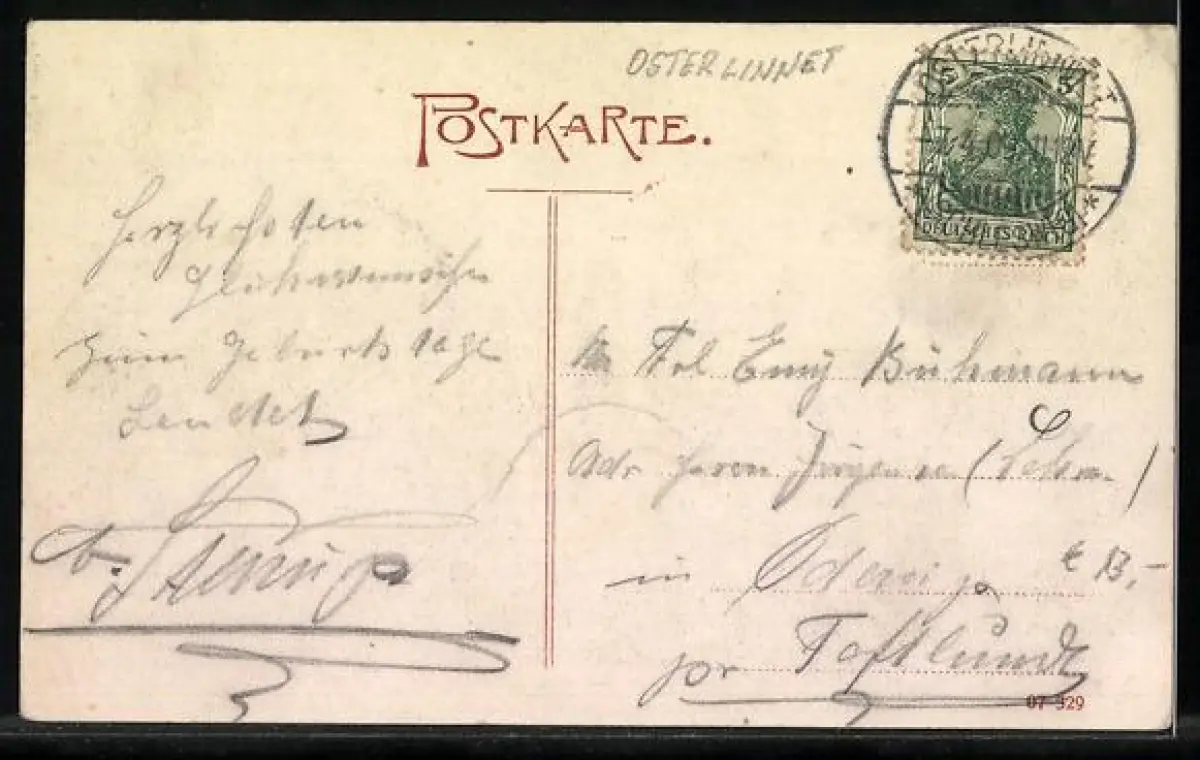 OSTERLINNET
POSTKARTE.
DEUTSCHES REICH
Herzlichsten
Glückwunsch
zum Geburtstage
sendet
Frl Emy Bühmann
Adr Herrn Jürgensen (Lehrer)
in
€ 13,-
pr Toftlundt
07 329